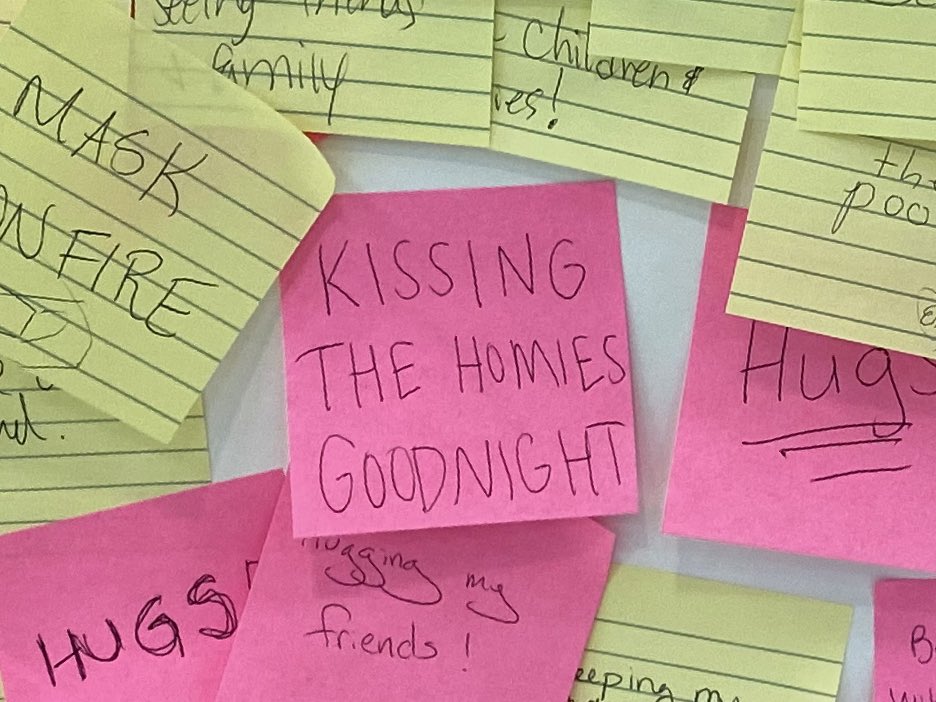 seeing friends
family
Children &
MASK
ON FIRE
KISSING
THE HOMIES
GOODNIGHT
Hugs
HUGS
Hugging my
friends!